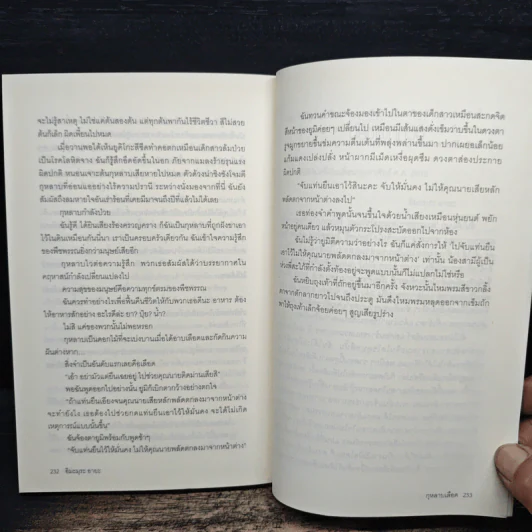 จะไม่รู้สาเหตุ ไม่ใช่แค่ต้นสองต้น แต่ทุกต้นพากันไร้ชีวิตชีวา สีไม่สวย
ต้นก็เล็ก ผิดเพี้ยนไปหมด
เมื่อวานพอได้เห็นยูคิโกะสีซีดทำคอตกเหมือนเด็กสาวเพิ่งป่วย
เป็นโรคโลหิตจาง ฉันก็รู้สึกอึดอัดขึ้นในอก ภัยจากแมลงร้ายรุนแรง
ผิดปกติ หนอนเจาะต้นกุหลาบเสียหายไปหมด ตัวด้วงน่าชิงชังโจมตี
กุหลาบที่อ่อนแออย่างไรความปรานี ระหว่างนั่งมองจากที่นี่ ฉันยัง
สัมผัสถึงลมหายใจอันเร่าร้อนที่เคยมีมาจนถึงปีที่แล้วไม่ได้เลย
กุหลาบกำลังป่วย
ฉันรู้ดี ได้ยินเสียงร้องครวญคราง ก็ฉันเป็นกุหลาบที่ถูกฝังขาเอา
ไว้ในดินเหมือนกันนี่นา เราเป็นครอบครัวเดียวกัน ฉันเข้าใจความรู้สึก
ของพืชพรรณยิ่งกว่ามนุษย์เสียอีก
กุหลาบไวต่อความรู้สึก พวกเธอสัมผัสได้ว่าบรรยากาศใน
คฤหาสน์กำลังเปลี่ยนแปลงไป
ความสุขของมนุษย์คือความทุกข์ตรมของพืชพรรณ
ฉันควรทำอย่างไรเพื่อฟื้นคืนชีวิตให้กับพวกเธอดีนะ อาหาร ต้อง
ให้อาหารสักอย่าง อะไรดีล่ะ ยา? ปุ๋ย? น้ำ?
ไม่สิ แค่ของพวกนั้นไม่พอหรอก
กุหลาบเป็นดอกไม้ที่จะเบ่งบานเมื่อได้อาบเลือดและกัดกินความ
มืดต่างหาก...
สิ่งจำเป็นอันดับแรกเลยคือเลือด
"เอ้า อย่ามัวแต่ยืนเฉยอยู่ ไปช่วยคุณนายติดม่านเสียสิ"
พอฉันพูดออกไปอย่างนั้น ยูมิก็เบิกตากว้างอย่างตกใจ
"ถ้าแท่นยืนเอียงจนคุณนายเสียหลักพลัดตกลงมาจากหน้าต่าง
จะทำยังไง เธอต้องไปช่วยกดแท่นยืนเอาไว้ให้มั่นคง จะได้ไม่เกิด
เหตุการณ์แบบนั้นขึ้น"
ฉันจ้องตายูมิพร้อมกับพูดช้าๆ
"จับแท่นยืนไว้ให้มั่นคง ไม่ให้คุณนายพลัดตกลงมาจากหน้าต่าง"
232
ฉันทวนคำขณะจ้องมองเข้าไปในตาของเด็กสาวเหมือนสะกดจิต
สีหน้าของยูมิค่อยๆ เปลี่ยนไป เหมือนมีเส้นแสงดั่งเข็มวาบขึ้นในดวงตา
รูจมูกขยายขึ้นข่มความตื่นเต้นที่พลุ่งพล่านขึ้นมา ปากเผยอเล็กน้อย
แก้มแดงเปล่งปลั่ง หน้าผากมีเม็ดเหงื่อผุดซึม ดวงตาส่องประกาย
ผิดปกติ
"จับแท่นยืนเอาไว้สินะคะ จับให้มั่นคง ไม่ให้คุณนายเสียหลัก
พลัดตกลงมาจากหน้าต่างลงไป"
เธอท่องจำคำพูดนั้นจนขึ้นใจด้วยน้ำเสียงเหมือนหุ่นยนต์ พยัก
หน้าอยู่คนเดียว แล้วหมุนตัวกระโปรงสะบัดออกไปจากห้อง
ฉันไม่รู้ว่ายูมิตีความว่าอย่างไร ฉันก็แค่สั่งการให้ 'ไปจับแท่นยืน
เอาไว้ไม่ให้คุณนายพลัดตกลงมาจากหน้าต่าง' เท่านั้น
ฉันหยิบถุงเท้าที่ถักอยู่ขึ้นมาอีกครั้ง
กุหลาบเลือด 233